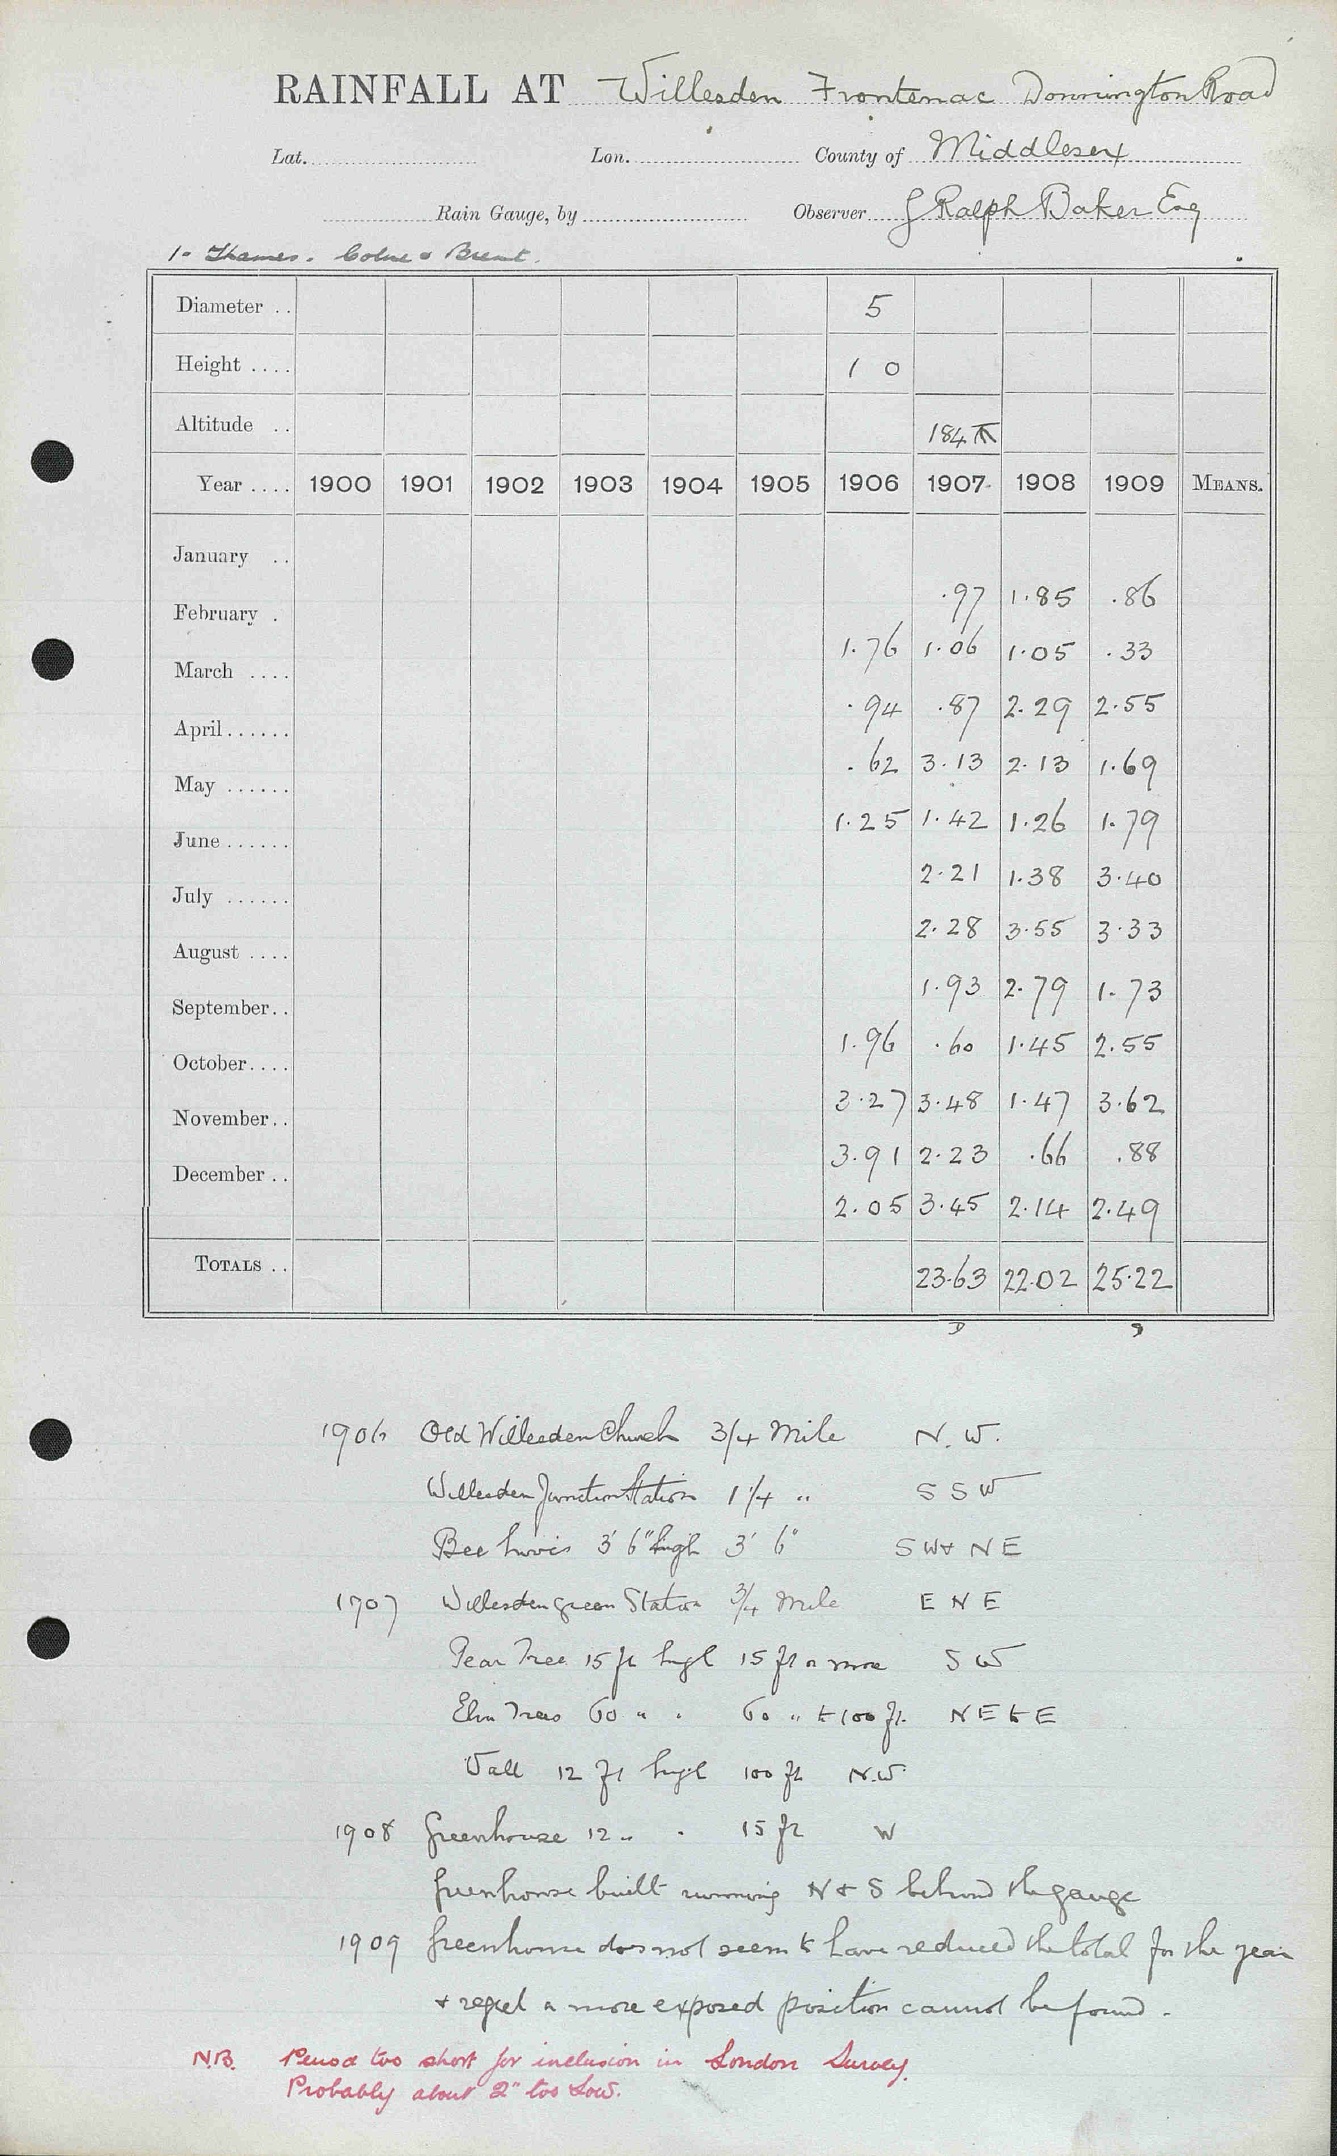 RAINFALL AT Willesden Frontenac Donnington Road
Lat. Lon. County of Middlesex
Rain Gauge, by Observer J Ralph Baker Esq
1. Thames. Colne & Brent.
Diameter .. 5
Height .... 1 0
Altitude .. 184
Year .... 1900 1901 1902 1903 1904 1905 1906 1907 1908 1909 MEANS.
January ..
.97 1.85 .86
February .
1.76 1.06 1.05 .33
March ....
.94 .87 2.29 2.55
April......
.62 3.13 2.13 1.69
May ......
1.25 1.42 1.26 1.79
June ......
2.21 1.38 3.40
July ......
2.28 3.55 3.33
August ....
1.93 2.79 1.73
September..
1.96 .60 1.45 2.55
October....
3.27 3.48 1.47 3.62
November..
3.91 2.23 .66 .88
December ..
2.05 3.45 2.14 2.49
TOTALS .. 23.63 22.02 25.22
1906 Old Willesden Church 3/4 Mile N. W.
Willesden Junction Station 1 1/4 " S S W
Bee hives 3' 6" high 3' 6" S W & N E
1907 Willesden Green Station 3/4 Mile E N E
Pear Tree 15 ft high 15 ft or more S W
Elm Trees 60 " " 60 " to 100 ft. N E to E
Wall 12 ft high 100 ft N.W.
1908 Greenhouse 12 " " 15 ft W
Greenhouse built running N & S behind the gauge
1909 Greenhouse does not seem to have reduced the total for the year
& regret a more exposed position cannot be found.
N.B. Period too short for inclusion in London Survey.
Probably about 2" too low.